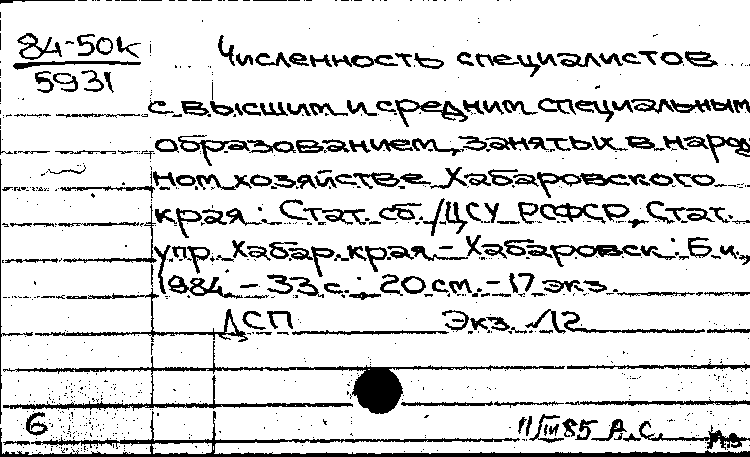 84-50к
5931
Численность специалистов
с высшим и средним специальным
образованием, занятых в народ
ном хозяйстве Хабаровского
края: Стат. сб./ЦСУ РСФСР, Стат.
упр. Хабар. края.- Хабаровск: Б.и.,
1984.- 33 с.; 20 см.- 17 экз.
ДСП Экз. №12
6
11/III 85 А.С.